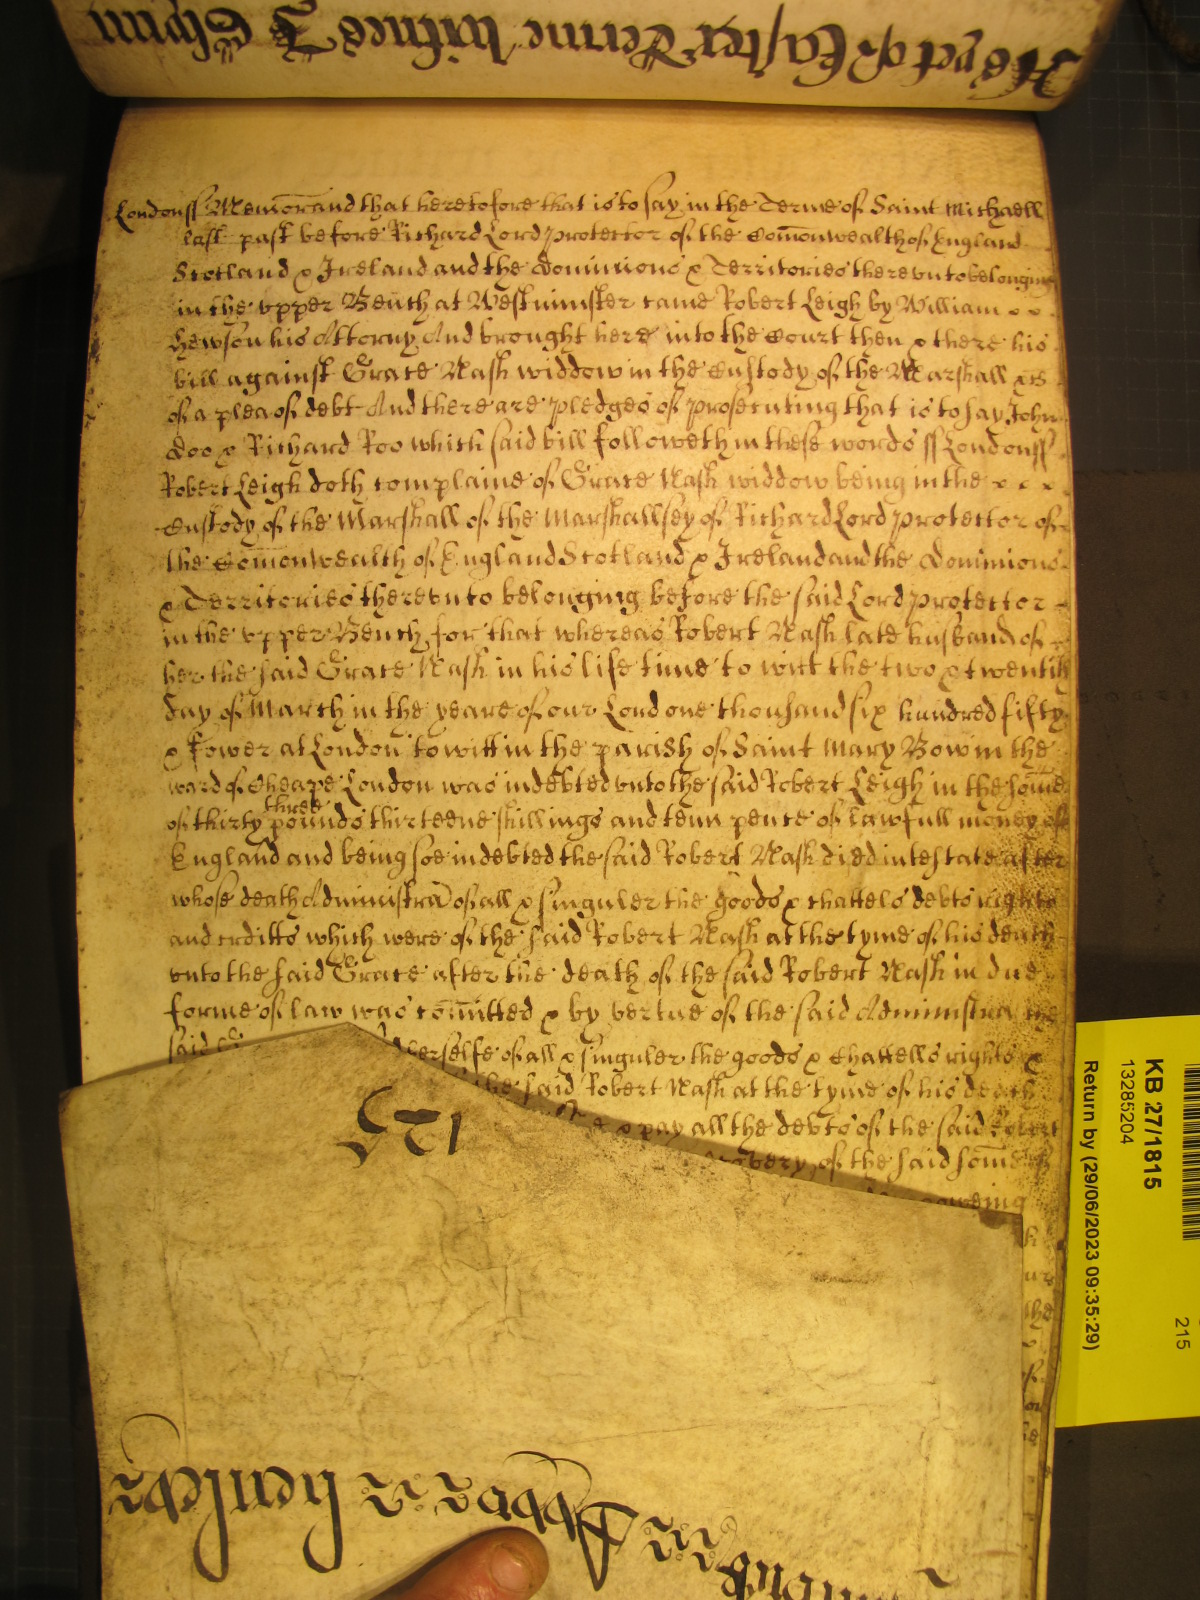 As yet of Easter Terme witnes J Glynn
Londonss Memorand that heretofore that is to say in the Terme of Saint Michaell
last past before Richard Lord Protector of the Com̄onwealth of England
Scotland & Ireland and the Dominions & Territories thereunto belonging
in the upper Bench at Westminster came Robert Leigh by William
Hewson his Attorny And brought here into the Court then & there his
bill against Grace Nash widdow in the Custody of the Marshall &c
of a plea of debt And there are pledges of prosecuting that is to say John
Doo & Richard Roo which said bill followeth in these words ss Londonss
Robert Leigh doth complaine of Grace Nash widdow being in the
Custody of the Marshall of the Marshallsey of Richard Lord Protector of
the Com̄onwealth of England Scotland & Ireland and the Dominions
& Territories thereunto belonging before the said Lord Protector
in the upper Bench for that whereas Robert Nash late husband of
her the said Grace Nash in his life time to witt the two & twentith
day of March in the yeare of our Lord one thousand six hundred fifty
& fower at London to witt in the parish of Saint Mary Bow in the
ward of Cheape London was indebted unto the said Robert Leigh in the som̄e
of thirty three pounds thirteene shillings and tenn pence of lawfull money of
England and being soe indebted the said Robert Nash died intestate after
whose death Administrac̄ of all & singuler the goods & chattels debts rights
and crditts which were of the said Robert Nash at the tyme of his death
unto the said Grace after the death of the said Robert Nash in due
forme of law was com̄itted & by vertue of the said Administrac̄ the
said herselfe of all & singuler the goods & Chattells rights &
the said Robert Nash at the tyme of his death
& pay all the debts of the said Robert
of the said som̄e
125
KB 27/1815
13285204
Return by (29/06/2023 09:35:29)
215